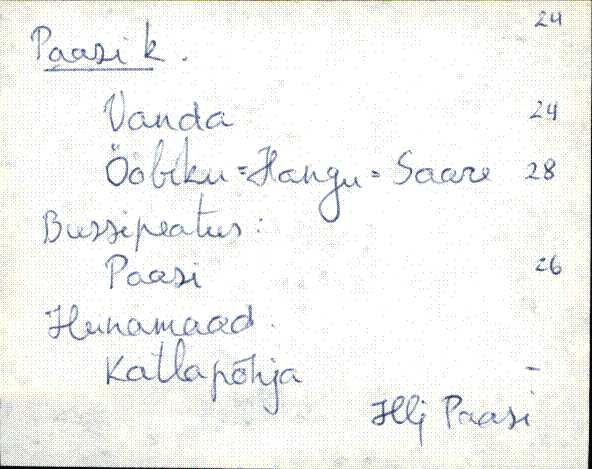 24
Paasi k.
Vanda 24
Ööbiku=Hangu=Saare 28
Bussipeatus:
Paasi 26
Hunamaad.
Katlapõhja -
Hlj Paasi